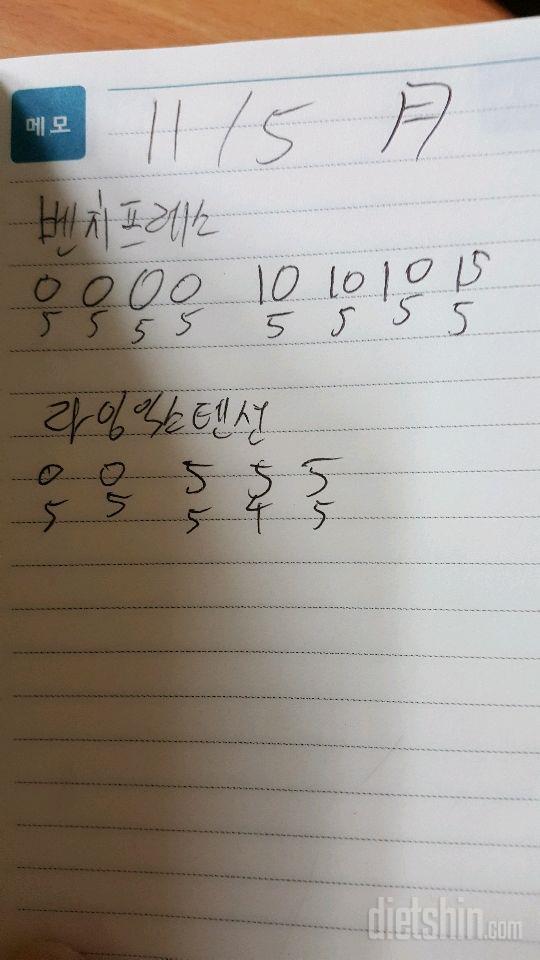 메모
11/5 月
벤치프레스
0 0 0 0 10 10 10 15
5 5 5 5 5 5 5 5
라잉익스텐션
0 0 5 5 5
5 5 5 4 5
dietshin.com